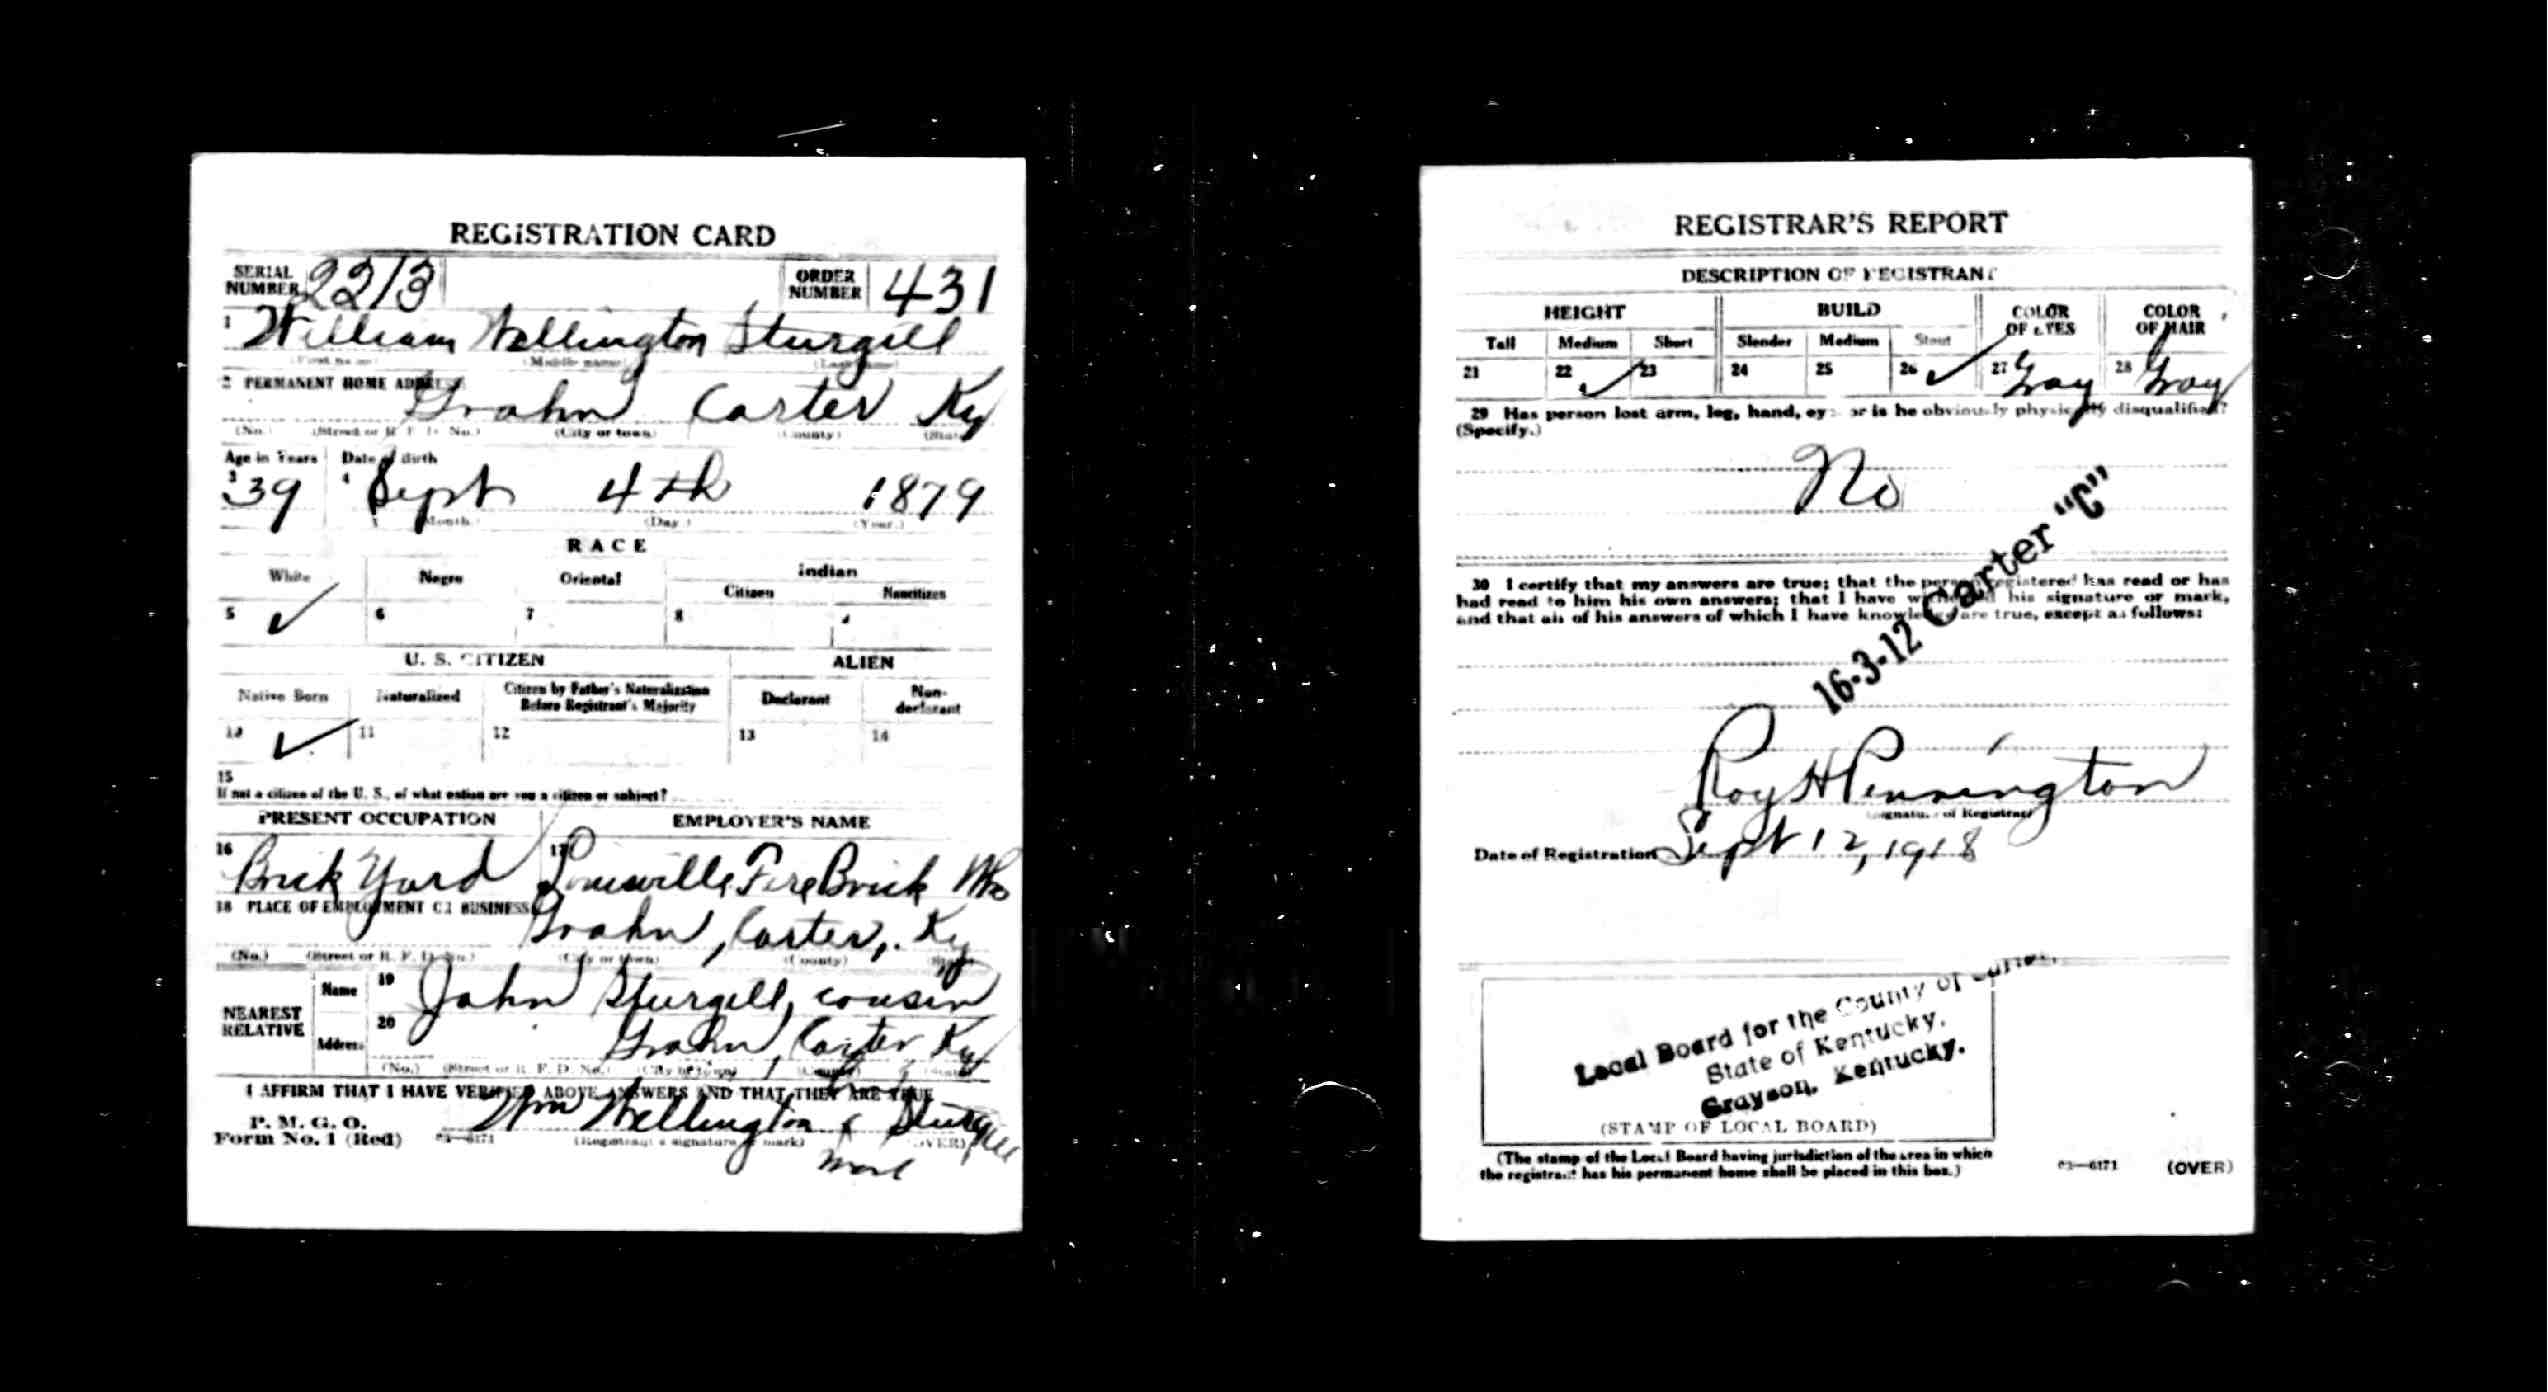 REGISTRATION CARD
SERIAL NUMBER 2213 ORDER NUMBER 431
1 William Wellington Sturgill
(First name) (Middle name) (Last name)
2 PERMANENT HOME ADDRESS
Grahn Carter Ky
(No.) (Street or R. F. D. No.) (City or town) (County) (State)
Age in Years Date of birth
3 39 4 Sept 4th 1879
(Month.) (Day.) (Year.)
RACE
White Negro Oriental Indian
Citizen Noncitizen
5 ✓ 6 7 8
U. S. CITIZEN ALIEN
Native Born Naturalized Citizen by Father's Naturalization Before Registrant's Majority Declarant Non-declarant
10 ✓ 11 12 13 14
15
If not a citizen of the U. S., of what nation are you a citizen or subject?
PRESENT OCCUPATION EMPLOYER'S NAME
16 Brick Yard 17 Louisville Fire Brick Wks
18 PLACE OF EMPLOYMENT OR BUSINESS
Grahn, Carter, Ky
(No.) (Street or R. F. D. No.) (City or town) (County) (State)
NEAREST RELATIVE
Name 19 John Sturgill, cousin
Address 20 Grahn, Carter, Ky
(No.) (Street or R. F. D. No.) (City or town) (County) (State)
I AFFIRM THAT I HAVE VERIFIED ABOVE ANSWERS AND THAT THEY ARE TRUE
P. M. G. O.
Form No. 1 (Red) 03—6171 (Registrant's signature or mark) (OVER)
Wm Wellington x Sturgill
his
mark
REGISTRAR'S REPORT
DESCRIPTION OF REGISTRANT
HEIGHT BUILD COLOR OF EYES COLOR OF HAIR
Tall Medium Short Slender Medium Stout
21 22 ✓ 23 24 25 26 ✓ 27 Gray 28 Gray
29 Has person lost arm, leg, hand, eye, or is he obviously physically disqualified?
(Specify.)
No
30 I certify that my answers are true; that the person registered has read or has
had read to him his own answers; that I have witnessed his signature or mark,
and that all of his answers of which I have knowledge are true, except as follows:
16-3-12 Carter "C"
Roy H Pennington
(Signature of Registrar)
Date of Registration Sept 12, 1918
Local Board for the County of Carter,
State of Kentucky.
Grayson, Kentucky.
(STAMP OF LOCAL BOARD)
(The stamp of the Local Board having jurisdiction of the area in which
the registrant has his permanent home shall be placed in this box.)
03—6171 (OVER)